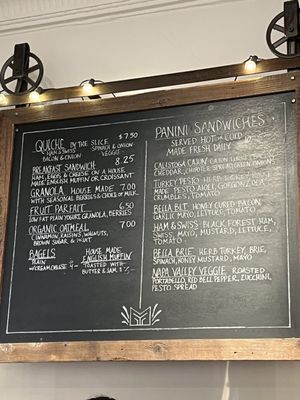 QUICHE BY THE SLICE $7.50
HAM & SWISS SPINACH & ONION
BACON & ONION VEGGIE
BREAKFAST SANDWICH 8.25
HAM, EGGS & CHEESE ON A HOUSE
MADE ENGLISH MUFFIN OR CROISSANT
GRANOLA HOUSE MADE 7.00
WITH SEASONAL BERRIES & CHOICE OF MILK
FRUIT PARFAIT 6.50
LOW FAT PLAIN YOGURT, GRANOLA, BERRIES
ORGANIC OATMEAL 7.00
CINNAMON, RAISINS, WALNUTS,
BROWN SUGAR & FRUIT
BAGELS
PLAIN
W/CREAM CHEESE 4-
HOUSE MADE
ENGLISH MUFFIN
TOASTED WITH
BUTTER & JAM
PANINI SANDWICHES
SERVED HOT OR COLD
MADE FRESH DAILY
CALISTOGA CAJUN
CHEDDAR, GREEN ONIONS
TURKEY PESTO HERB
MADE PESTO AIOLI, GORGONZOLA
CRUMBLES, TOMATO
BELLA BLT HONEY CURED BACON,
GARLIC MAYO, LETTUCE, TOMATO
HAM & SWISS BLACK FOREST HAM,
SWISS, MAYO, MUSTARD, LETTUCE,
TOMATO
BELLA BRIE HERB TURKEY, BRIE,
SPINACH, HONEY MUSTARD, MAYO
NAPA VALLEY VEGGIE ROASTED
PORTABELLO, RED BELL PEPPER, ZUCCHINI,
PESTO SPREAD